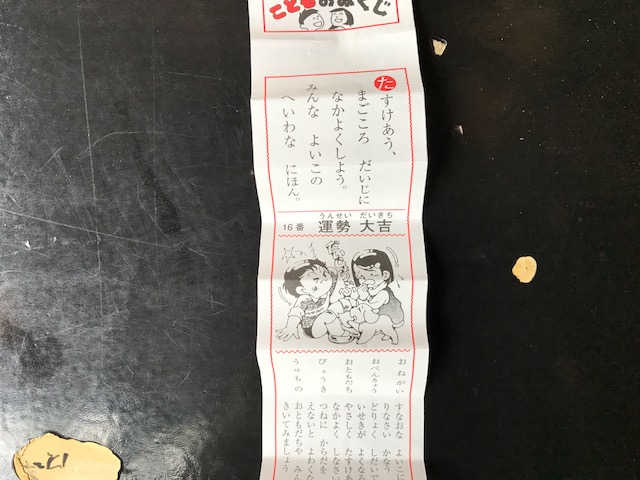 こどもおみくじ
たすけあう、
まごころ だいじに
なかよくしよう。
みんな よいこの
へいわな にほん。
16番 運勢 大吉
うんせい だいきち
おねがい
すなおな よいこに
りなさい かなう
おべんきょう
どりょく しだいで
いせきが よくなる
おともだち
やさしく たすけあ
なかよく しなさい
びょうき
つねに からだを
えないと よわくな
うせもの
おともだちや みん
きいてみましょう